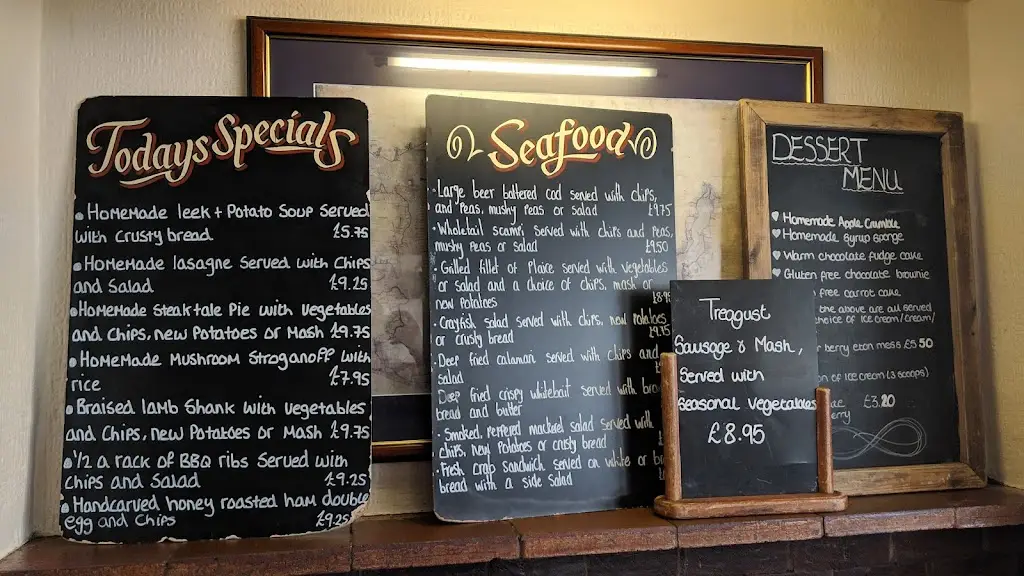 Todays Specials
• Homemade leek + Potato Soup Served
with crusty bread £5.75
• Homemade lasagne Served with Chips
and Salad £9.25
• Homemade Steak+ale Pie with vegetables
and Chips, new Potatoes or Mash £9.75
• Homemade Mushroom Stroganoff with
rice £7.95
• Braised lamb Shank with vegetables
and Chips, new Potatoes or Mash £9.75
• 1/2 a rack of BBQ ribs Served with
Chips and Salad £9.25
• Handcarved honey roasted ham double
egg and Chips £9.25
Seafood
• Large beer battered cod served with chips,
and Peas, mushy Peas or salad £9.75
• Wholetail scampi served with chips and peas,
mushy peas or salad £9.50
• Grilled fillet of Plaice served with vegetables
or salad and a choice of chips, mash or
new potatoes £8.95
• Crayfish salad served with chips, new potatoes
or crusty bread £9.75
• Deep fried calamari served with chips and
salad
• Deep fried crispy whitebait served with
bread and butter
• Smoked, peppered mackerel salad served with
chips, new potatoes or crusty bread
• Fresh crab sandwich served on white or
bread with a side salad
Treagust
Sausage & Mash,
Served with
Seasonal vegetables
£8.95
DESSERT
MENU
Homemade Apple Crumble
Homemade Syrup Sponge
Warm chocolate fudge cake
Gluten free chocolate brownie
free carrot cake
the above are all served
choice of ICE cream/cream/
berry eton mess £5.50
of ICE cream (3 scoops)
£3.20